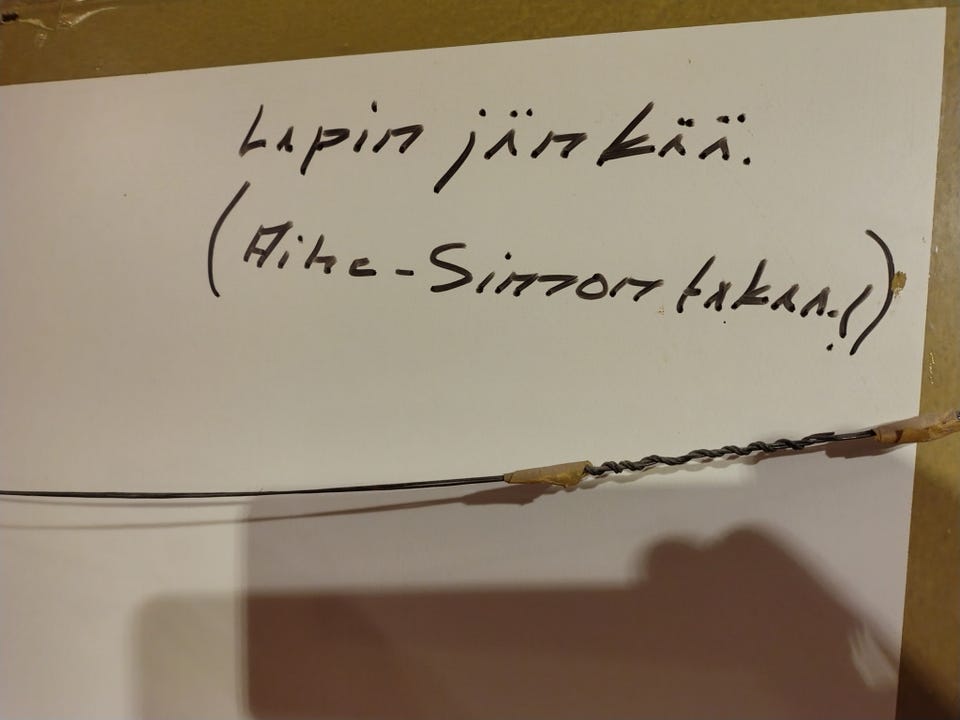 Lapin jänkää.
(Aihe-Simon takaa.!)